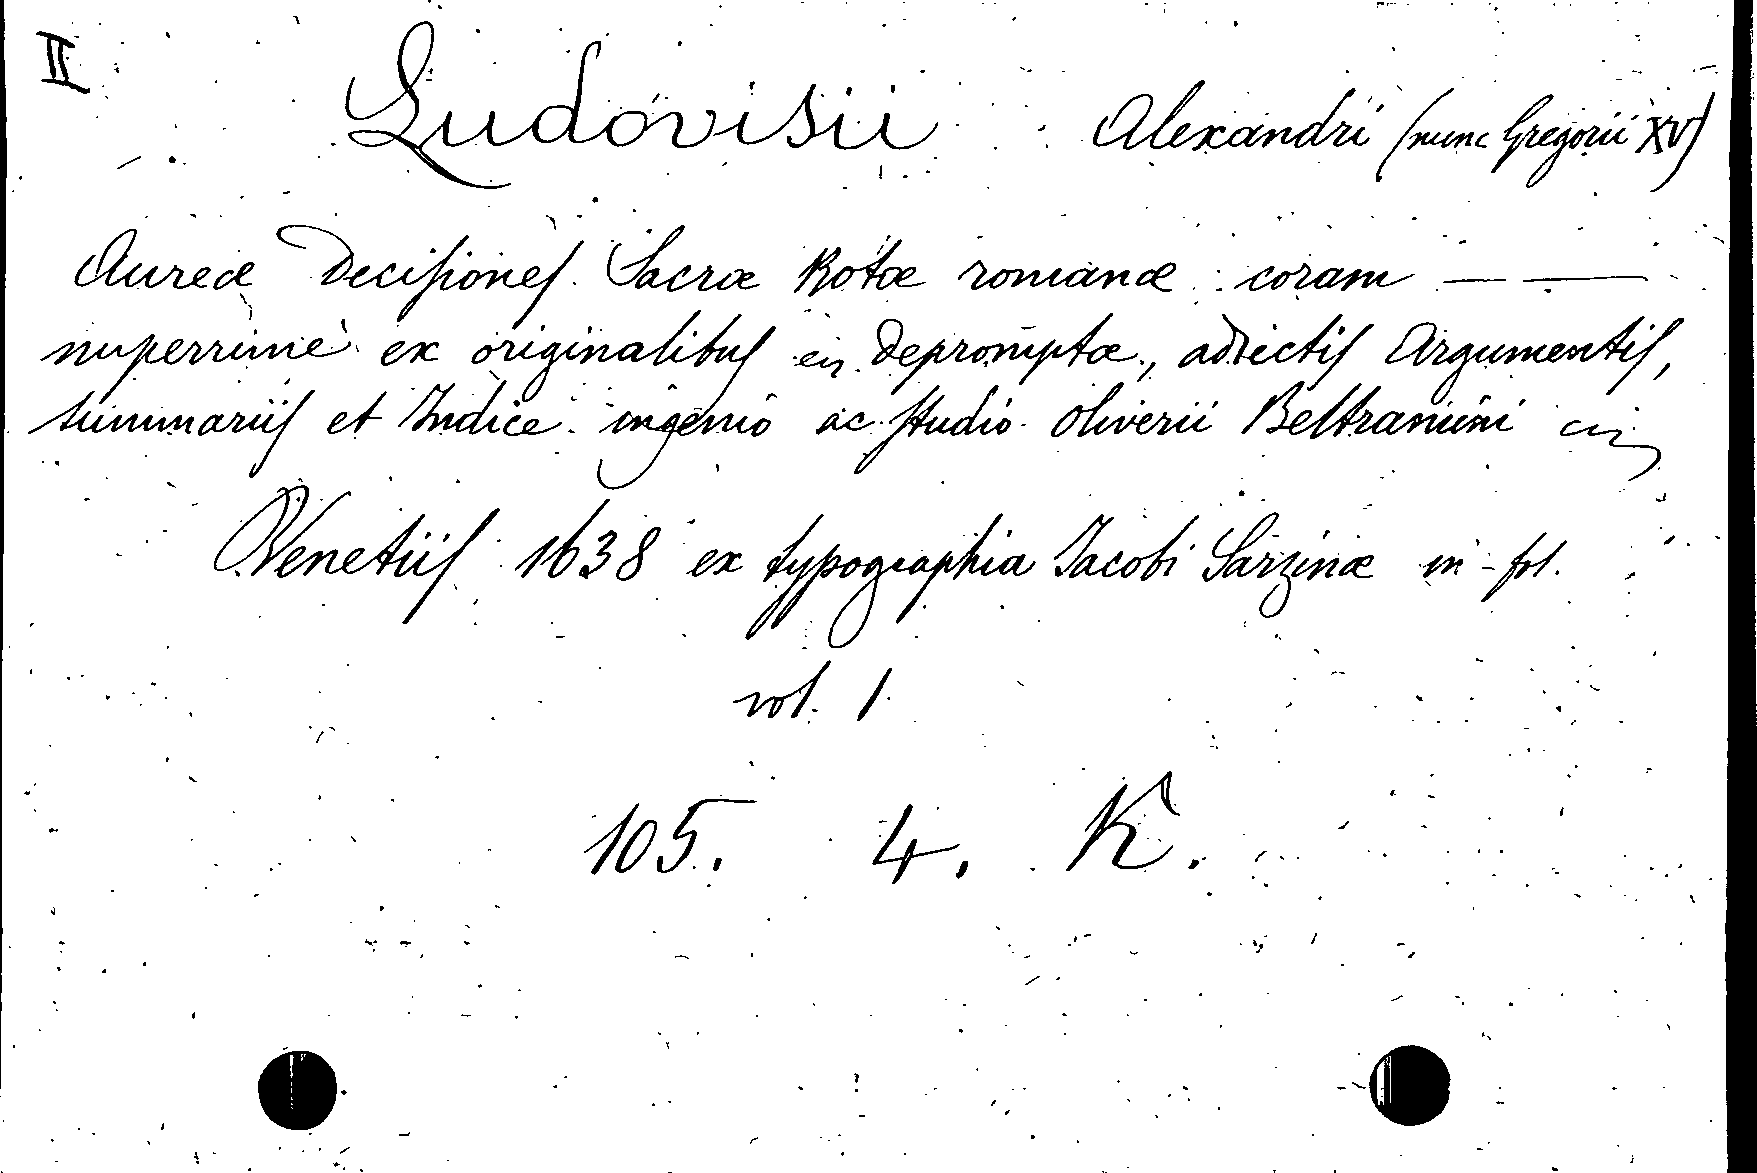 II
Ludovisii Alexandri (nunc Gregorii XV)
Aureæ Decisiones Sacræ Rotæ romanæ coram — —
nuperrime ex originalibus depromptæ, adiectis Argumentis,
summariis et Indice ingenio ac studio Oliverii Beltramini
Venetiis 1638 ex typographia Jacobi Sarzinæ in-fol.
vol. 1
105. 4. K.